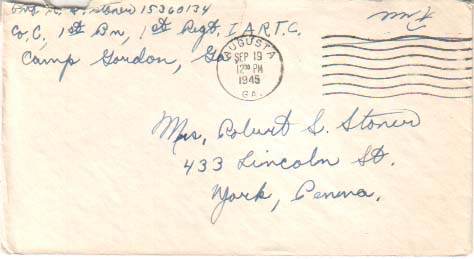 Pvt R. S. Stoner 15360134
Co, C, 1st Bn, 1st Regt, I.A.R.T.C.
Camp Gordon, Ga
Free
AUGUSTA
SEP 19
12 30 PM
1945
GA.
Mrs, Robert S. Stoner
433 Lincoln St.
York, Penna.